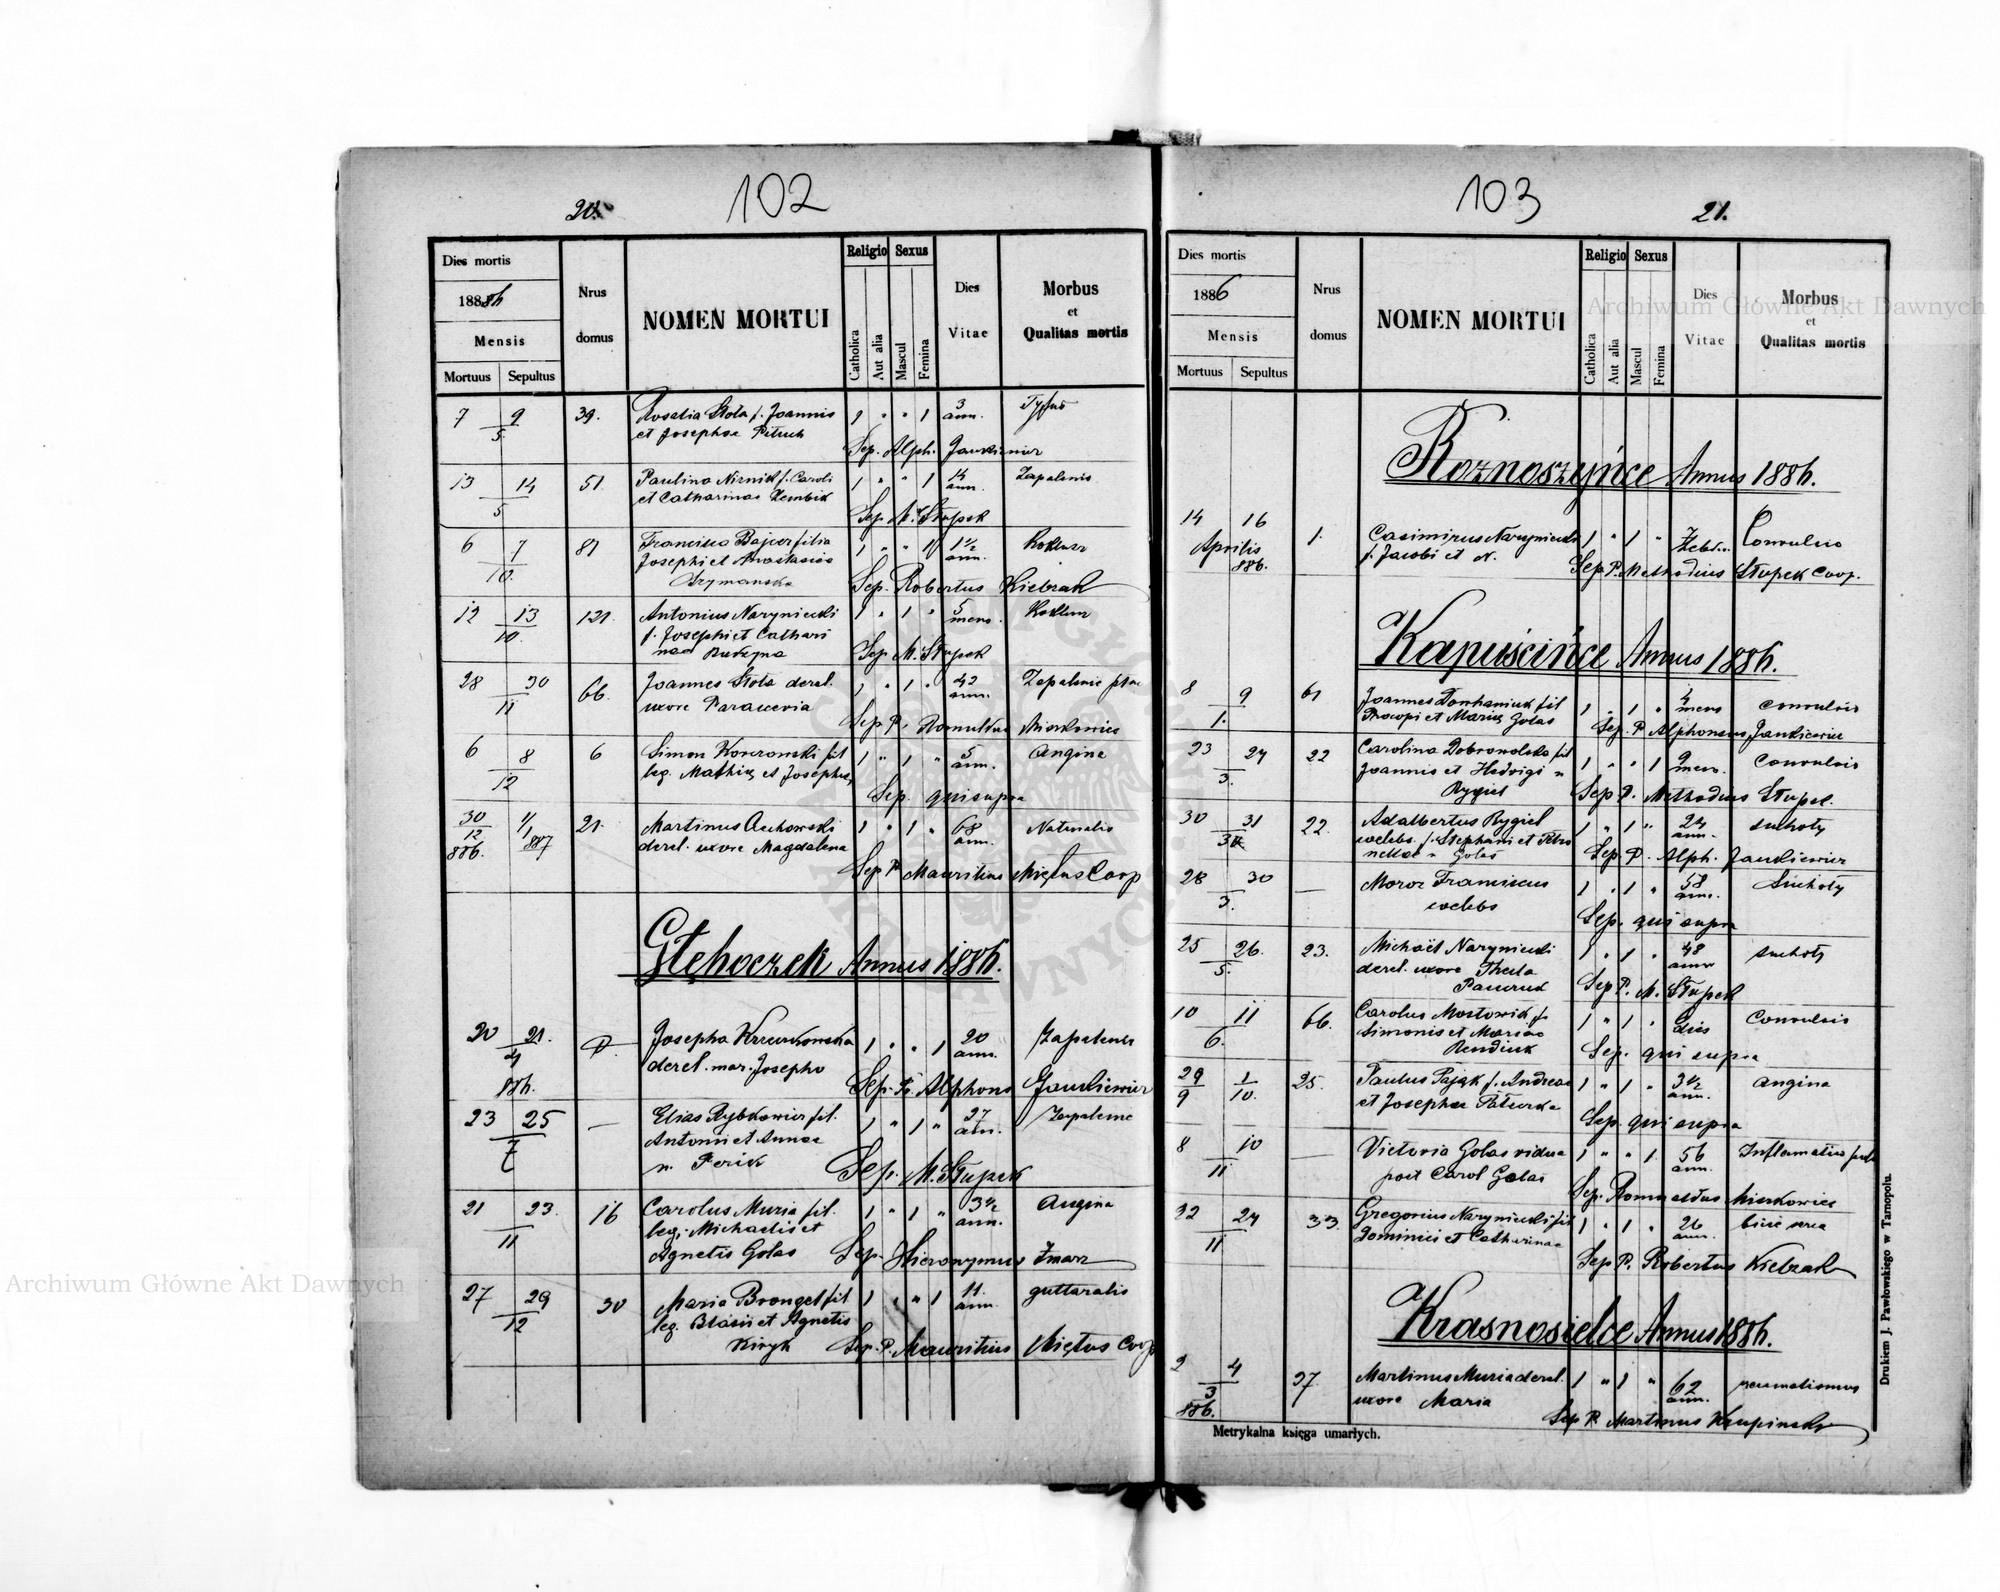 102
20.
Dies mortis
1886
Mensis
Mortuus Sepultus
Nrus domus
NOMEN MORTUI
Religio
Catholica
Aut alia
Sexus
Mascul
Femina
Dies Vitae
Morbus
et
Qualitas mortis
7 9 39. Rosalia Stota f. Joannis 1 " " 1 3 ann. Typhus
5. et Josephae Petruk
Sep. Alph. Jankiewicz
13 14 51. Paulina f. Caroli 1 " " 1 14 ann. Zapalenie
5 et Catharinae Zembik
Sep. M. Stupek
6 7 81 Francisca Bajcer filia 1 " " 1 1 1/2 ann. Koklusz
10. Josephi et Anastasiae
Szymanska
Sep. Robertus Kielzak
12 13 121. Antonius Naryniecki 1 " 1 " 5 mens. Koklusz
10. f. Josephi et Cathari
nae
Sep. M. Stupek
28 30 66. Joannes Stota derel. 1 " 1 " 42 ann. Zapalenie
11 uxore Parascevia
Sep. P. Romuldus
6 8 6 Simon fil 1 " 1 " 5 ann. Angina
12 leg. Mathiae et Josephae
Sep. qui supra
30 1/1 21. Martinus 1 " 1 " 68 ann. Naturalis
12 887 derel. uxore Magdalena
886.
Sep. P. Mauritius Miętus Coop
Głęboczek Annus 1886.
20 21. Josepha 1 " " 1 20 ann. Zapalenie
derel. mar. Josepho
886. Sep. Alphons Jankiewicz
23 25 — Elias Rybkowicz fil. 1 " 1 " 27 ann. Zapalenie
7 Antonii et Annae
n. Perik
Sep. M. Stupek
21 23. 16 Carolus Muria fil. 1 " 1 " 3 1/2 ann. Angina
11 leg. Michaelis et
Agnetis Golas Sep. Hieronymus
27 29 30 Maria Brongel fil 1 " " 1 11. ann. guttaralis
12 leg. Blasii et Agnetis
Kiryk Sep. P. Mauritius Miętus Coop
103
21.
Dies mortis
1886
Mensis
Mortuus Sepultus
Nrus domus
NOMEN MORTUI
Religio
Catholica
Aut alia
Sexus
Mascul
Femina
Dies Vitae
Morbus
et
Qualitas mortis
Roznoszyńce Annus 1886.
14 16 1. Casimirus Naryniecki 1 " 1 " Convulsio
Aprilis f. Jacobi et N.
886. Sep. P. Methodius Stupek Coop.
Kapuścińce Annus 1886.
8 9 61 Joannes fil 1 " 1 " mens convulsio
1. Procopi et Mariae Golas
Sep. P. Alphonsus Jankiewicz
23 24 22 Carolina Dobrowolska fil 1 " " 1 9 mens. convulsio
3. Joannis et Hedvigi n
Rygiel Sep. P. Methodius Stupek
30 31 22. Adalbertus Rygiel 1 " 1 " 24 ann. suchoty
coelebs. f. Stephani et Petro
nellae n Golas Sep. P. Alph. Jankiewicz
28 30 — Moroz Franciscus 1 " 1 " 58 ann. Suchoty
3. coelebs
Sep. qui supra
25 26. 23. Michaël Naryniecki 1 " 1 " 48 ann. suchoty
5. derel. uxore Thecla
Sep. P. M. Stupek
10 11 66. Carolus Mostowik f. 1 " 1 " dies Convulsio
6. Simonis et Mariae
Sep. qui supra
29 1 25. Paulus Pająk f. Andreae 1 " 1 " 3 1/2 ann. angina
9 10. et Josephae
Sep. qui supra
8 10 — Victoria Golas vidua 1 " " 1 56 ann. Inflamatio
11 post Carol Golas
Sep. Romualdus
22 24 33. Gregorius Naryniecki fil 1 " 1 " 26 ann.
11 Dominici et Catharinae
Sep. P. Robertus Kielzak
Krasnosielce Annus 1886.
2 4 37. Martinus Muria derel. 1 " 1 " 62 ann. reumatismus
3 uxore Maria
886. Sep. P. Martinus Krupinski
Metrykalna księga umarłych.
Drukiem J. Pawłowskiego w Tarnopolu.
Archiwum Główne Akt Dawnych
Archiwum Główne Akt Dawnych